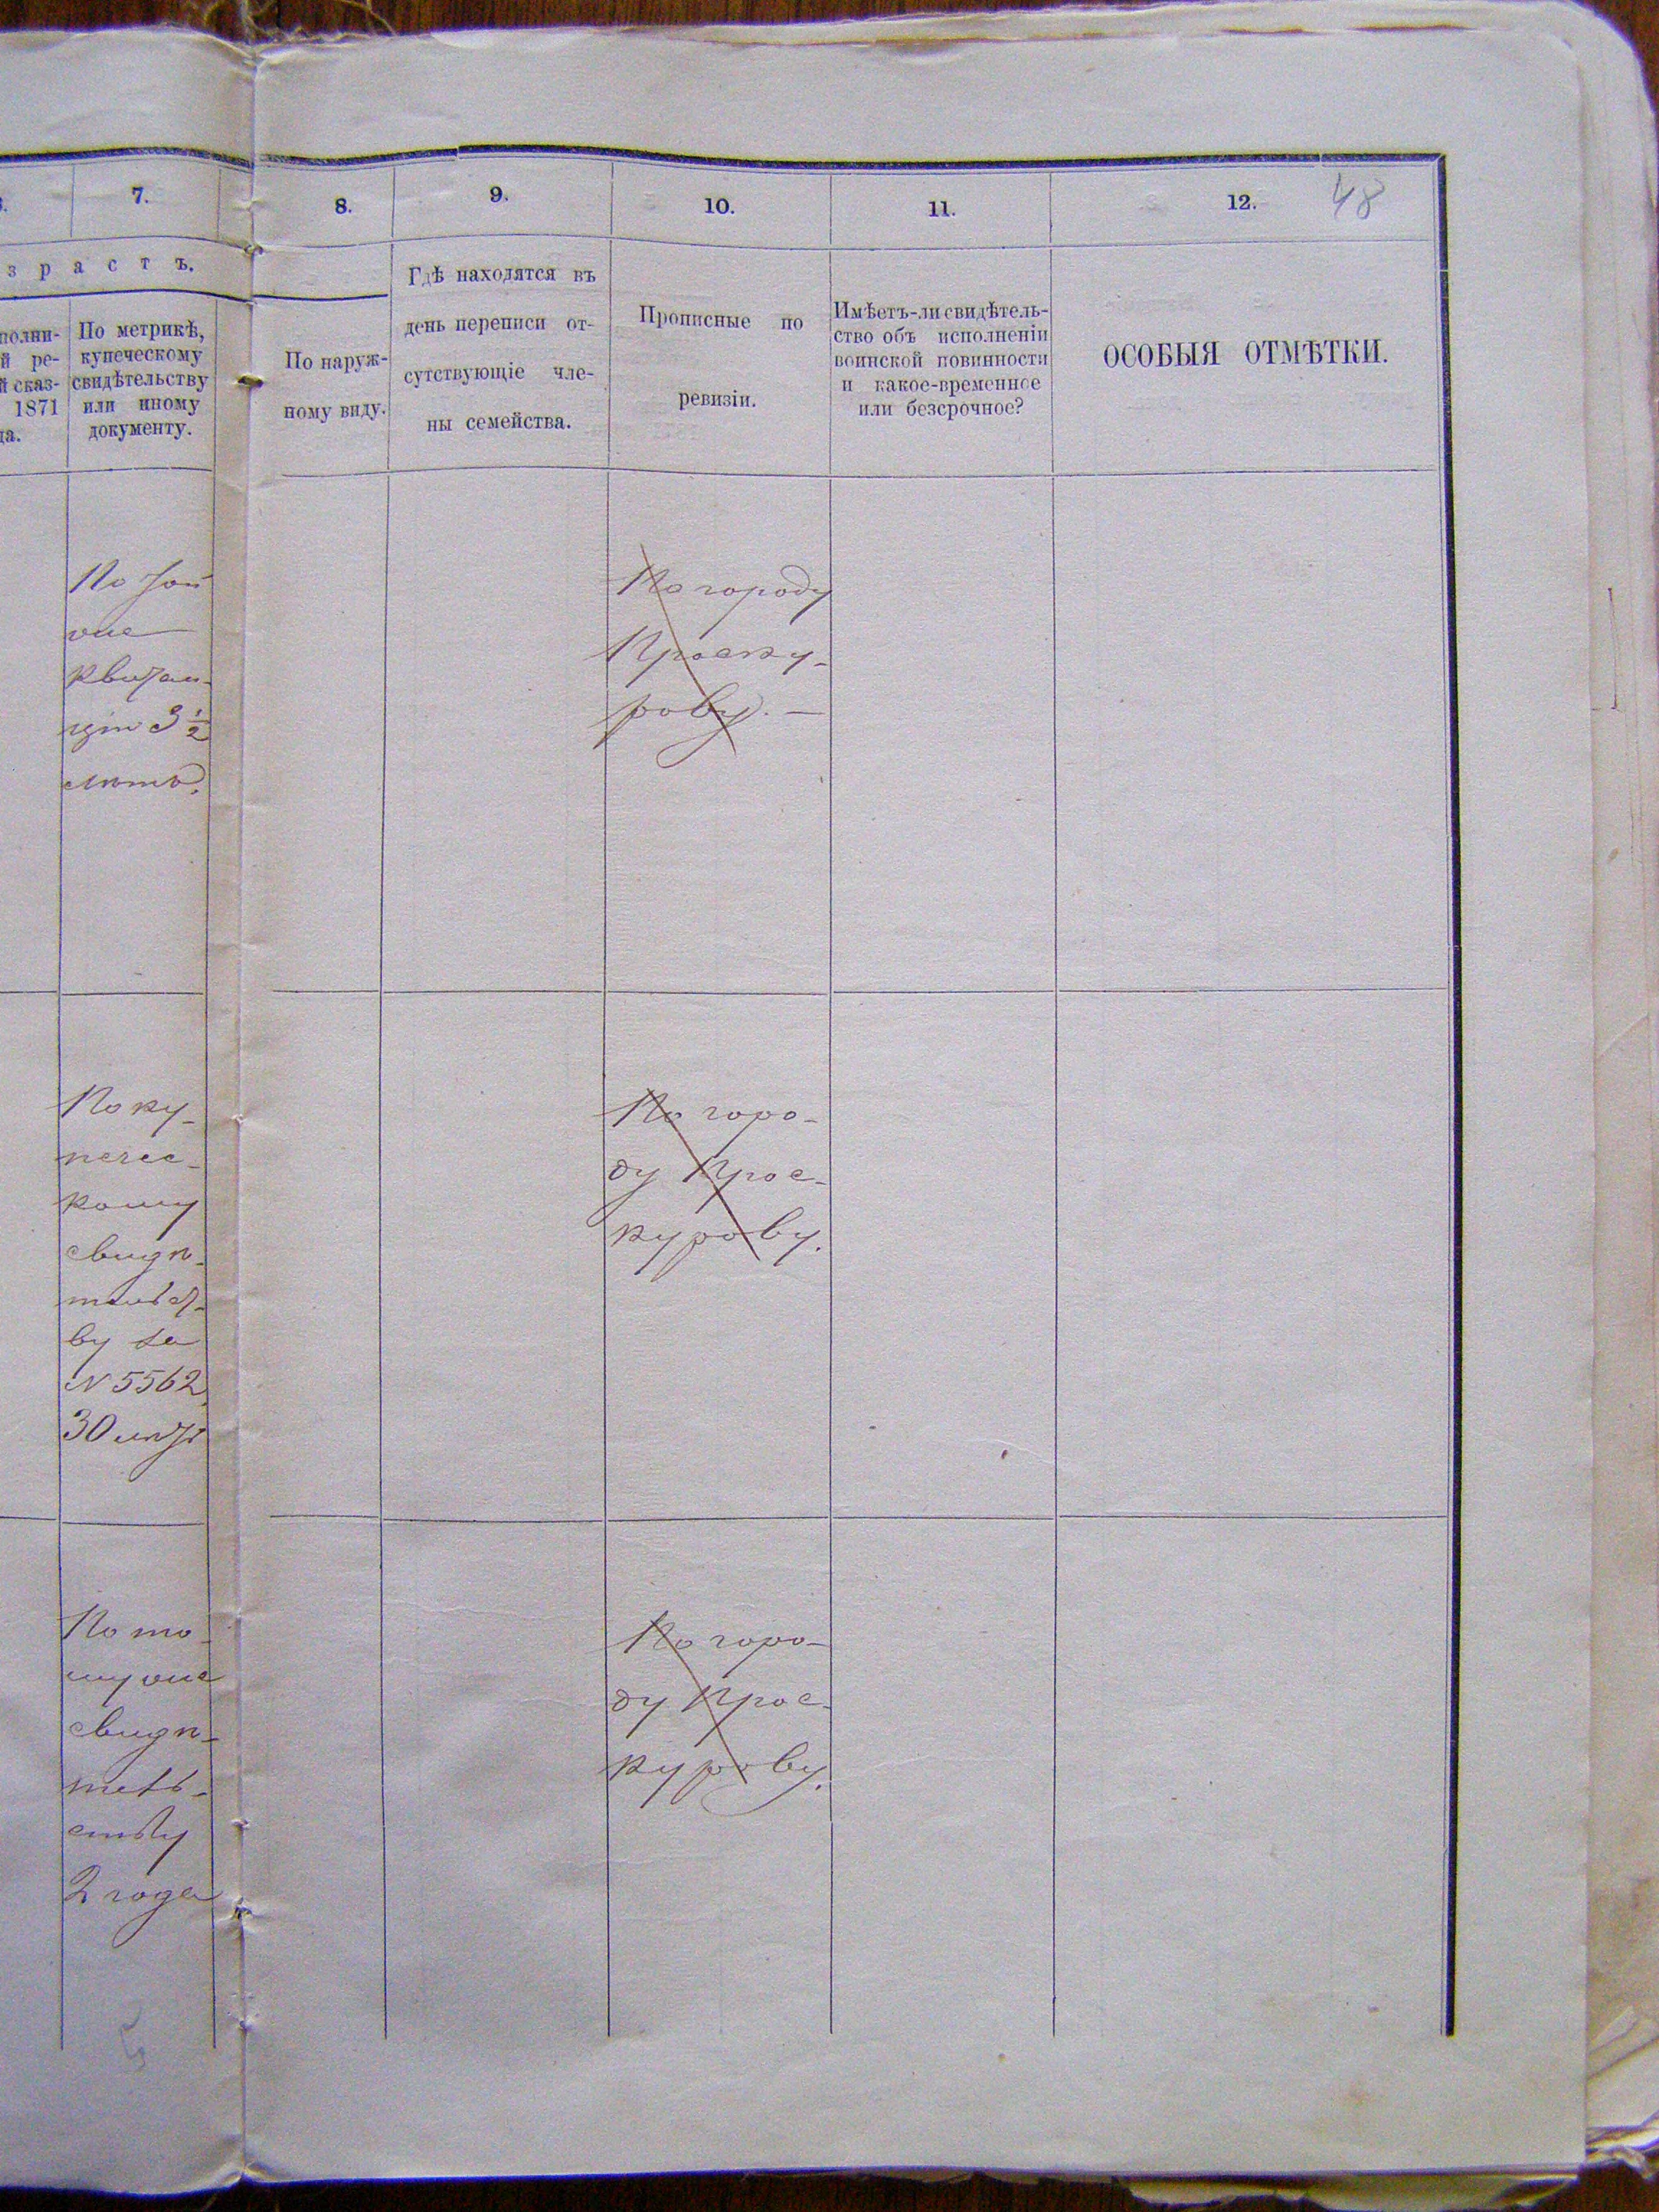 7.
8.
9.
10.
11.
12.
48
з р а с т ъ.
полни-
й ре-
й сказ-
1871
да.
По метрикѣ,
купеческому
свидѣтельству
или иному
документу.
По наруж-
ному виду.
Гдѣ находятся въ
день переписи от-
сутствующіе чле-
ны семейства.
Прописные по
ревизіи.
Имѣетъ-ли свидѣтель-
ство объ исполненіи
воинской повинности
и какое-временное
или безсрочное?
ОСОБЫЯ ОТМѢТКИ.
По той
же
квитан-
ціи 3 ½
лѣтъ.
По городу
Проску-
рову. —
По ку-
печес-
кому
свидѣ-
тельст-
ву за
N 5562
30 лѣтъ
По горо-
ду Прос-
курову.
По то-
му же
свидѣ-
тель-
ству
2 года
По горо-
ду Прос-
курову.